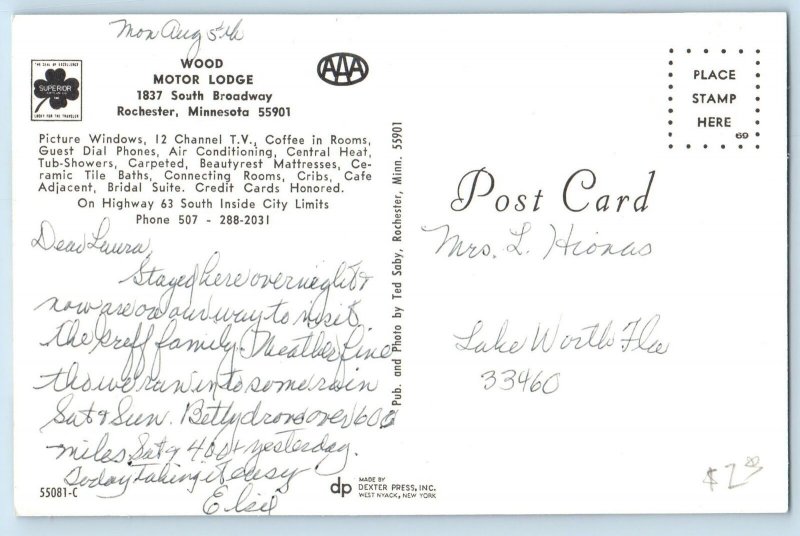 Mon Aug 5th
THE SEAL OF EXCELLENCE
SUPERIOR
LUCKY FOR THE TRAVELER
WOOD
MOTOR LODGE
1837 South Broadway
Rochester, Minnesota 55901
AAA
Picture Windows, 12 Channel T.V., Coffee in Rooms,
Guest Dial Phones, Air Conditioning, Central Heat,
Tub-Showers, Carpeted, Beautyrest Mattresses, Ce-
ramic Tile Baths, Connecting Rooms, Cribs, Cafe
Adjacent, Bridal Suite. Credit Cards Honored.
On Highway 63 South Inside City Limits
Phone 507 - 288-2031
Dear Laura,
Stayed here overnight &
now are on our way to visit
the Greff family. Weather fine
tho we ran into some rain
Sat & Sun. Betty drove over 600
miles Sat & 400+ yesterday.
Today taking it easy
Elsie
55081-C
Pub. and Photo by Ted Saby, Rochester, Minn. 55901
dp
MADE BY
DEXTER PRESS, INC.
WEST NYACK, NEW YORK
PLACE
STAMP
HERE
69
Post Card
Mrs. L. Hionas
Lake Worth Fla
33460
$2.00